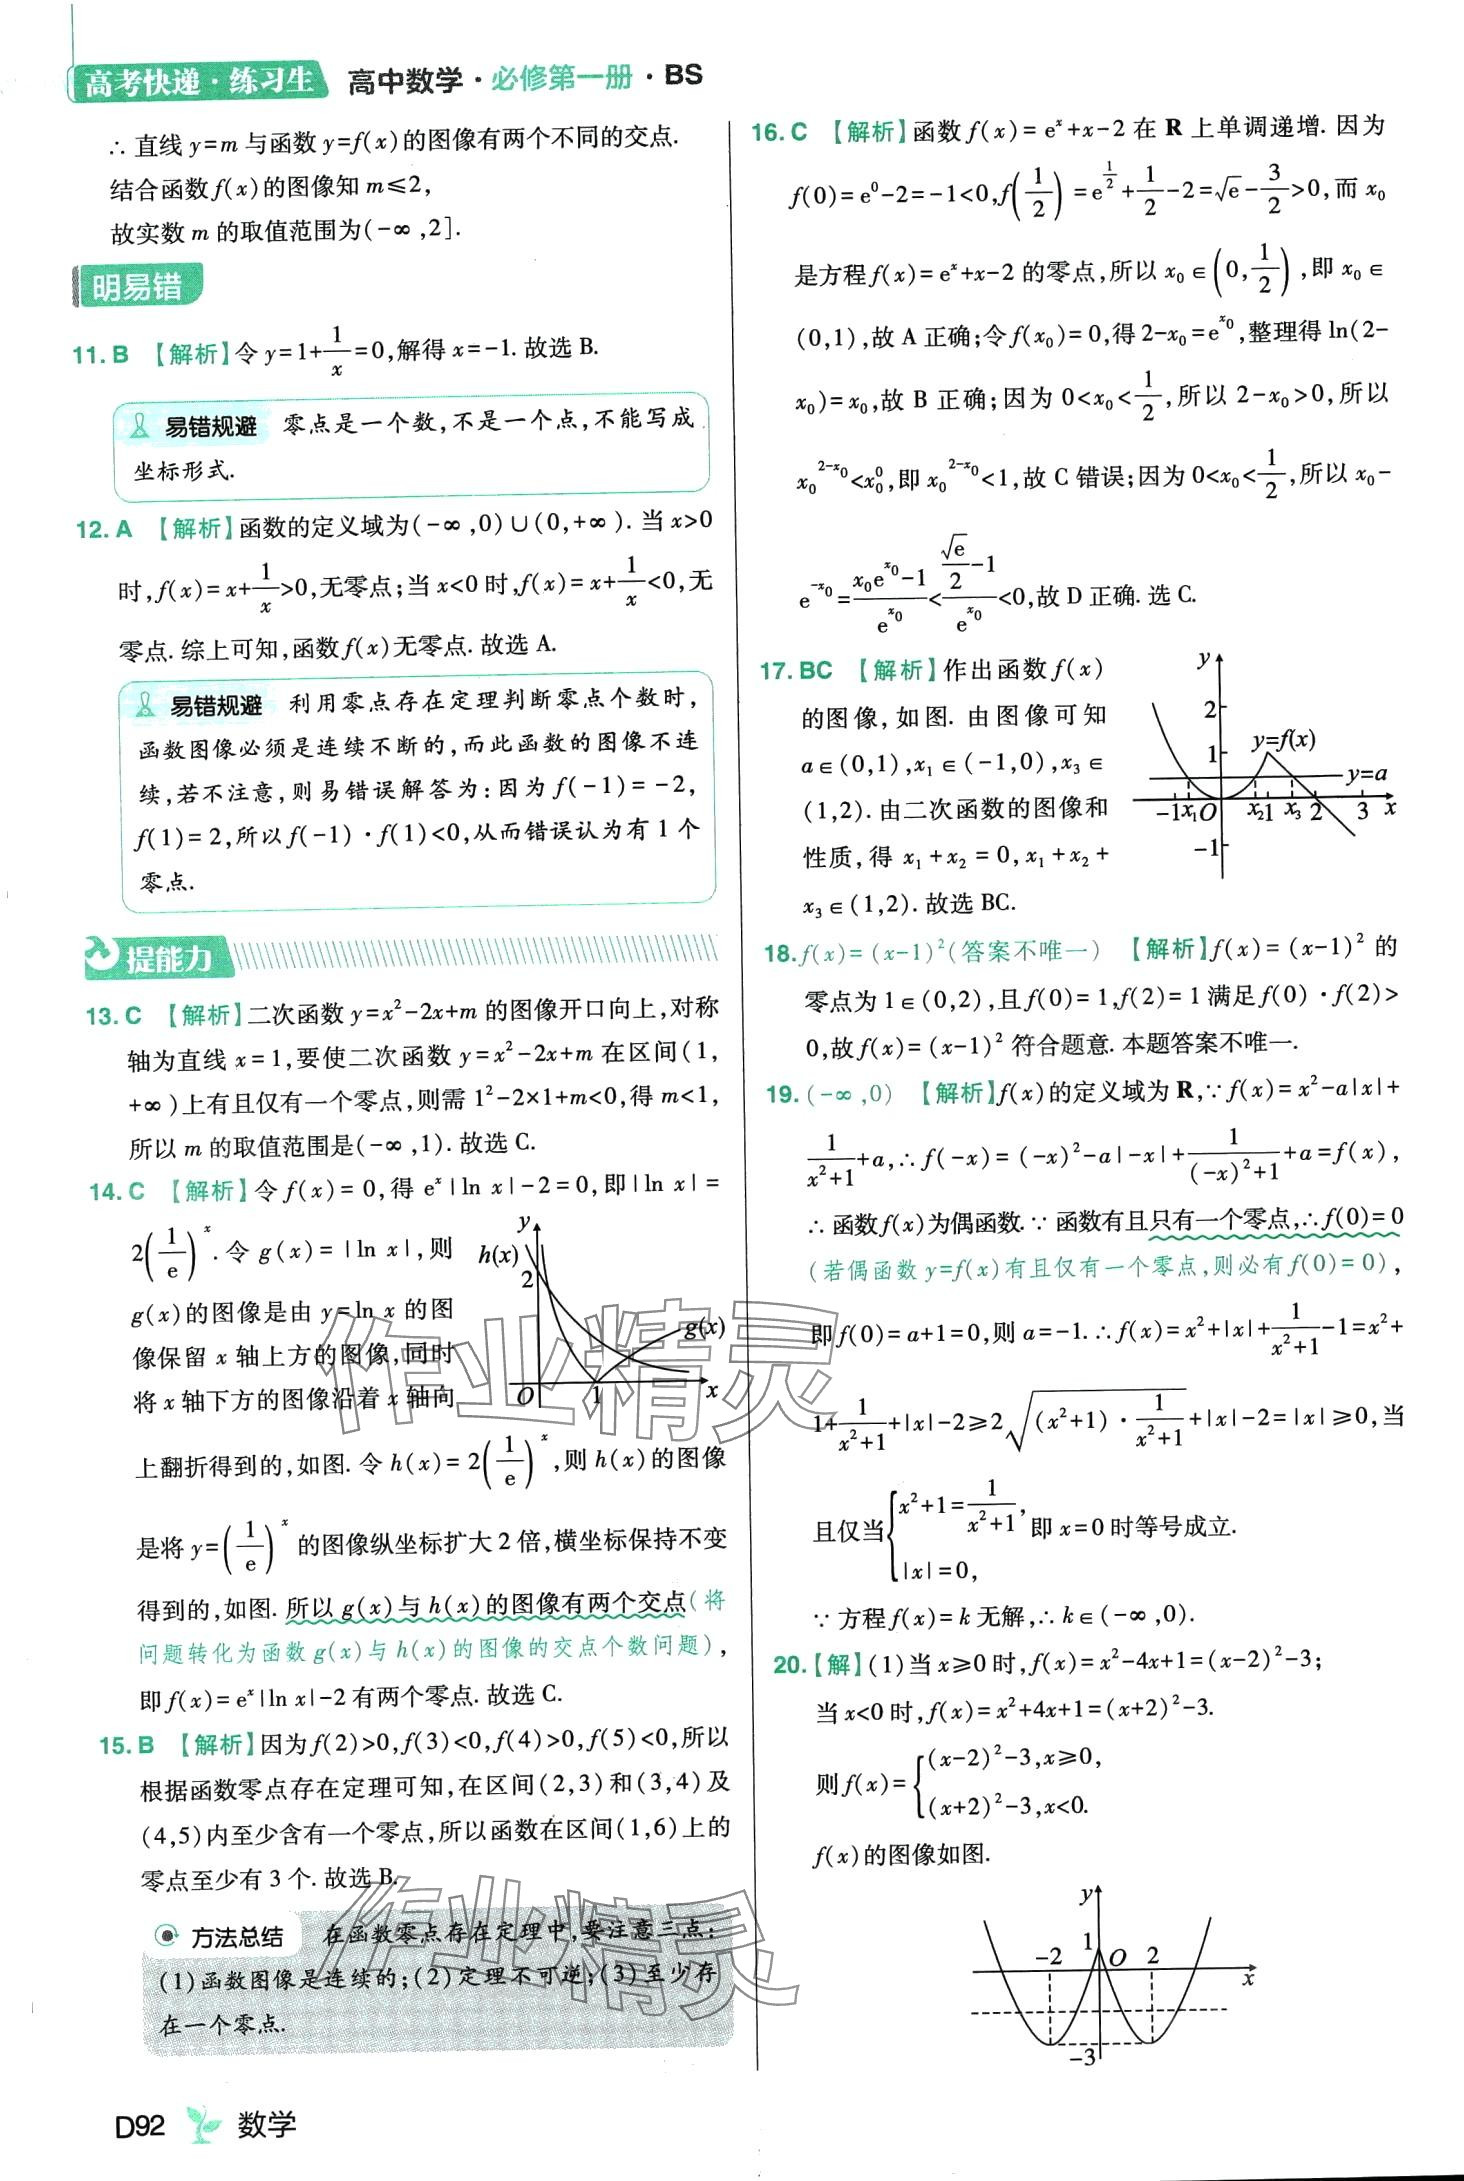 高考快递·练习生 高中数学·必修第一册·BS
∴直线y=m与函数y=f(x)的图像有两个不同的交点.
结合函数f(x)的图像知m≤2,
故实数m的取值范围为(-∞,2].
明易错
11. B 【解析】令y=1+1/x=0,解得x=-1.故选B.
易错规避 零点是一个数,不是一个点,不能写成
坐标形式.
12. A 【解析】函数的定义域为(-∞,0)∪(0,+∞).当x>0
时,f(x)=x+1/x>0,无零点;当x<0时,f(x)=x+1/x<0,无
零点.综上可知,函数f(x)无零点.故选A.
易错规避 利用零点存在定理判断零点个数时,
函数图像必须是连续不断的,而此函数的图像不连
续,若不注意,则易错误解答为:因为f(-1)=-2,
f(1)=2,所以f(-1)·f(1)<0,从而错误认为有1个
零点.
提能力
13. C 【解析】二次函数y=x²-2x+m的图像开口向上,对称
轴为直线x=1,要使二次函数y=x²-2x+m在区间(1,
+∞)上有且仅有一个零点,则需1²-2×1+m<0,得m<1,
所以m的取值范围是(-∞,1).故选C.
14. C 【解析】令f(x)=0,得eˣ|ln x|-2=0,即|ln x|=
2(1/e)ˣ.令g(x)=|ln x|,则
g(x)的图像是由y=ln x的图
像保留x轴上方的图像,同时
将x轴下方的图像沿着x轴向
y
h(x)
2
g(x)
O 1 x
上翻折得到的,如图.令h(x)=2(1/e)ˣ,则h(x)的图像
是将y=(1/e)ˣ的图像纵坐标扩大2倍,横坐标保持不变
得到的,如图.所以g(x)与h(x)的图像有两个交点(将
问题转化为函数g(x)与h(x)的图像的交点个数问题),
即f(x)=eˣ|ln x|-2有两个零点.故选C.
15. B 【解析】因为f(2)>0,f(3)<0,f(4)>0,f(5)<0,所以
根据函数零点存在定理可知,在区间(2,3)和(3,4)及
(4,5)内至少含有一个零点,所以函数在区间(1,6)上的
零点至少有3个.故选B.
方法总结 在函数零点存在定理中,要注意三点:
(1)函数图像是连续的;(2)定理不可逆;(3)至少存
在一个零点.
16. C 【解析】函数f(x)=eˣ+x-2在R上单调递增.因为
f(0)=e⁰-2=-1<0,f(1/2)=e^(1/2)+1/2-2=√e-3/2>0,而x₀
是方程f(x)=eˣ+x-2的零点,所以x₀∈(0,1/2),即x₀∈
(0,1),故A正确;令f(x₀)=0,得2-x₀=e^(x₀),整理得ln(2-
x₀)=x₀,故B正确;因为0<x₀<1/2,所以2-x₀>0,所以
x₀^(2-x₀)<x₀⁰,即x₀^(2-x₀)<1,故C错误;因为0<x₀<1/2,所以x₀-
e^(-x₀)=(x₀e^(x₀)-1)/e^(x₀)<(√e/2-1)/e^(x₀)<0,故D正确.选C.
17. BC 【解析】作出函数f(x)
的图像,如图.由图像可知
a∈(0,1),x₁∈(-1,0),x₃∈
(1,2).由二次函数的图像和
性质,得x₁+x₂=0,x₁+x₂+
x₃∈(1,2).故选BC.
y
2
1 y=f(x)
y=a
-1 x₁ O x₂ 1 x₃ 2 3 x
-1
18. f(x)=(x-1)²(答案不唯一) 【解析】f(x)=(x-1)²的
零点为1∈(0,2),且f(0)=1,f(2)=1满足f(0)·f(2)>
0,故f(x)=(x-1)²符合题意.本题答案不唯一.
19. (-∞,0) 【解析】f(x)的定义域为R,∵f(x)=x²-a|x|+
1/(x²+1)+a,∴f(-x)=(-x)²-a|-x|+1/((-x)²+1)+a=f(x),
∴函数f(x)为偶函数.∵函数有且只有一个零点,∴f(0)=0
(若偶函数y=f(x)有且仅有一个零点,则必有f(0)=0),
即f(0)=a+1=0,则a=-1.∴f(x)=x²+|x|+1/(x²+1)-1=x²+
1+1/(x²+1)+|x|-2≥2√((x²+1)·1/(x²+1))+|x|-2=|x|≥0,当
且仅当{x²+1=1/(x²+1), |x|=0,即x=0时等号成立.
∵方程f(x)=k无解,∴k∈(-∞,0).
20.【解】(1)当x≥0时,f(x)=x²-4x+1=(x-2)²-3;
当x<0时,f(x)=x²+4x+1=(x+2)²-3.
则f(x)={(x-2)²-3,x≥0, (x+2)²-3,x<0.
f(x)的图像如图.
y
1
-2 O 2 x
-3
D92 数学
作业精灵
作业精灵